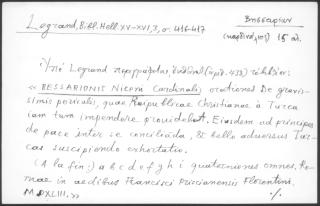 Legrand, Bibl. Hell. XV-XVI, 3, σ. 416-417
Βησσαρίων
(καρδινάλιος) 15 αἰ.
Ὑπὸ Legrand περιγράφεται, (ἀριθ. 433)
« BESSARIONIS Niceni Cardinalis orationes De gravis-
simis periculis, quae Reipublicae Christianae à Turca
iam tum impendere providebat. Eiusdem ad principes
de pace inter se concilianda, & bello adversus Tur-
cas suscipiendo exhortatio.
(A la fin:) a b c d e f g h i quaterniones omnes. Ro-
mae in aedibus Francisci Priscianensis Florentini.
M.D.XLIII. »
./.